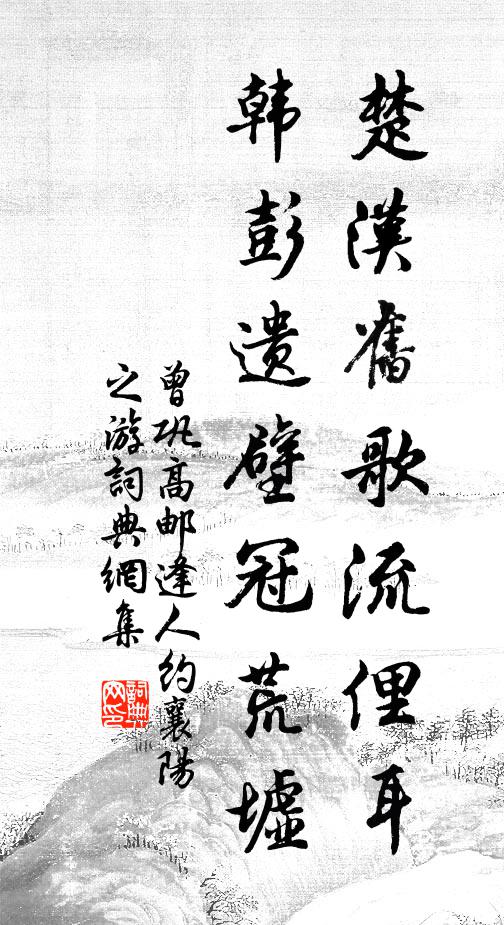 楚漢舊歌流俚耳
韓彭遺壁冠荒墟
曾巩高邮逢人約襄陽
之游詞典網集
詞典
网印